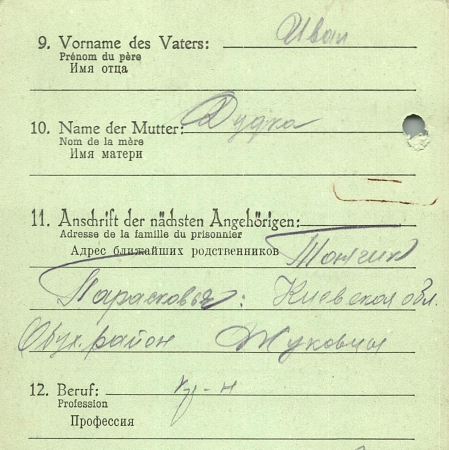 9. Vorname des Vaters: Иван
Prénom du père
Имя отца
10. Name der Mutter: Дудка
Nom de la mère
Имя матери
11. Anschrift der nächsten Angehörigen:
Adresse de la famille du prisonnier
Адрес ближайших родственников
Парасковья: Киевская обл.
Обух. район Жуковцы
12. Beruf:
Profession
Профессия